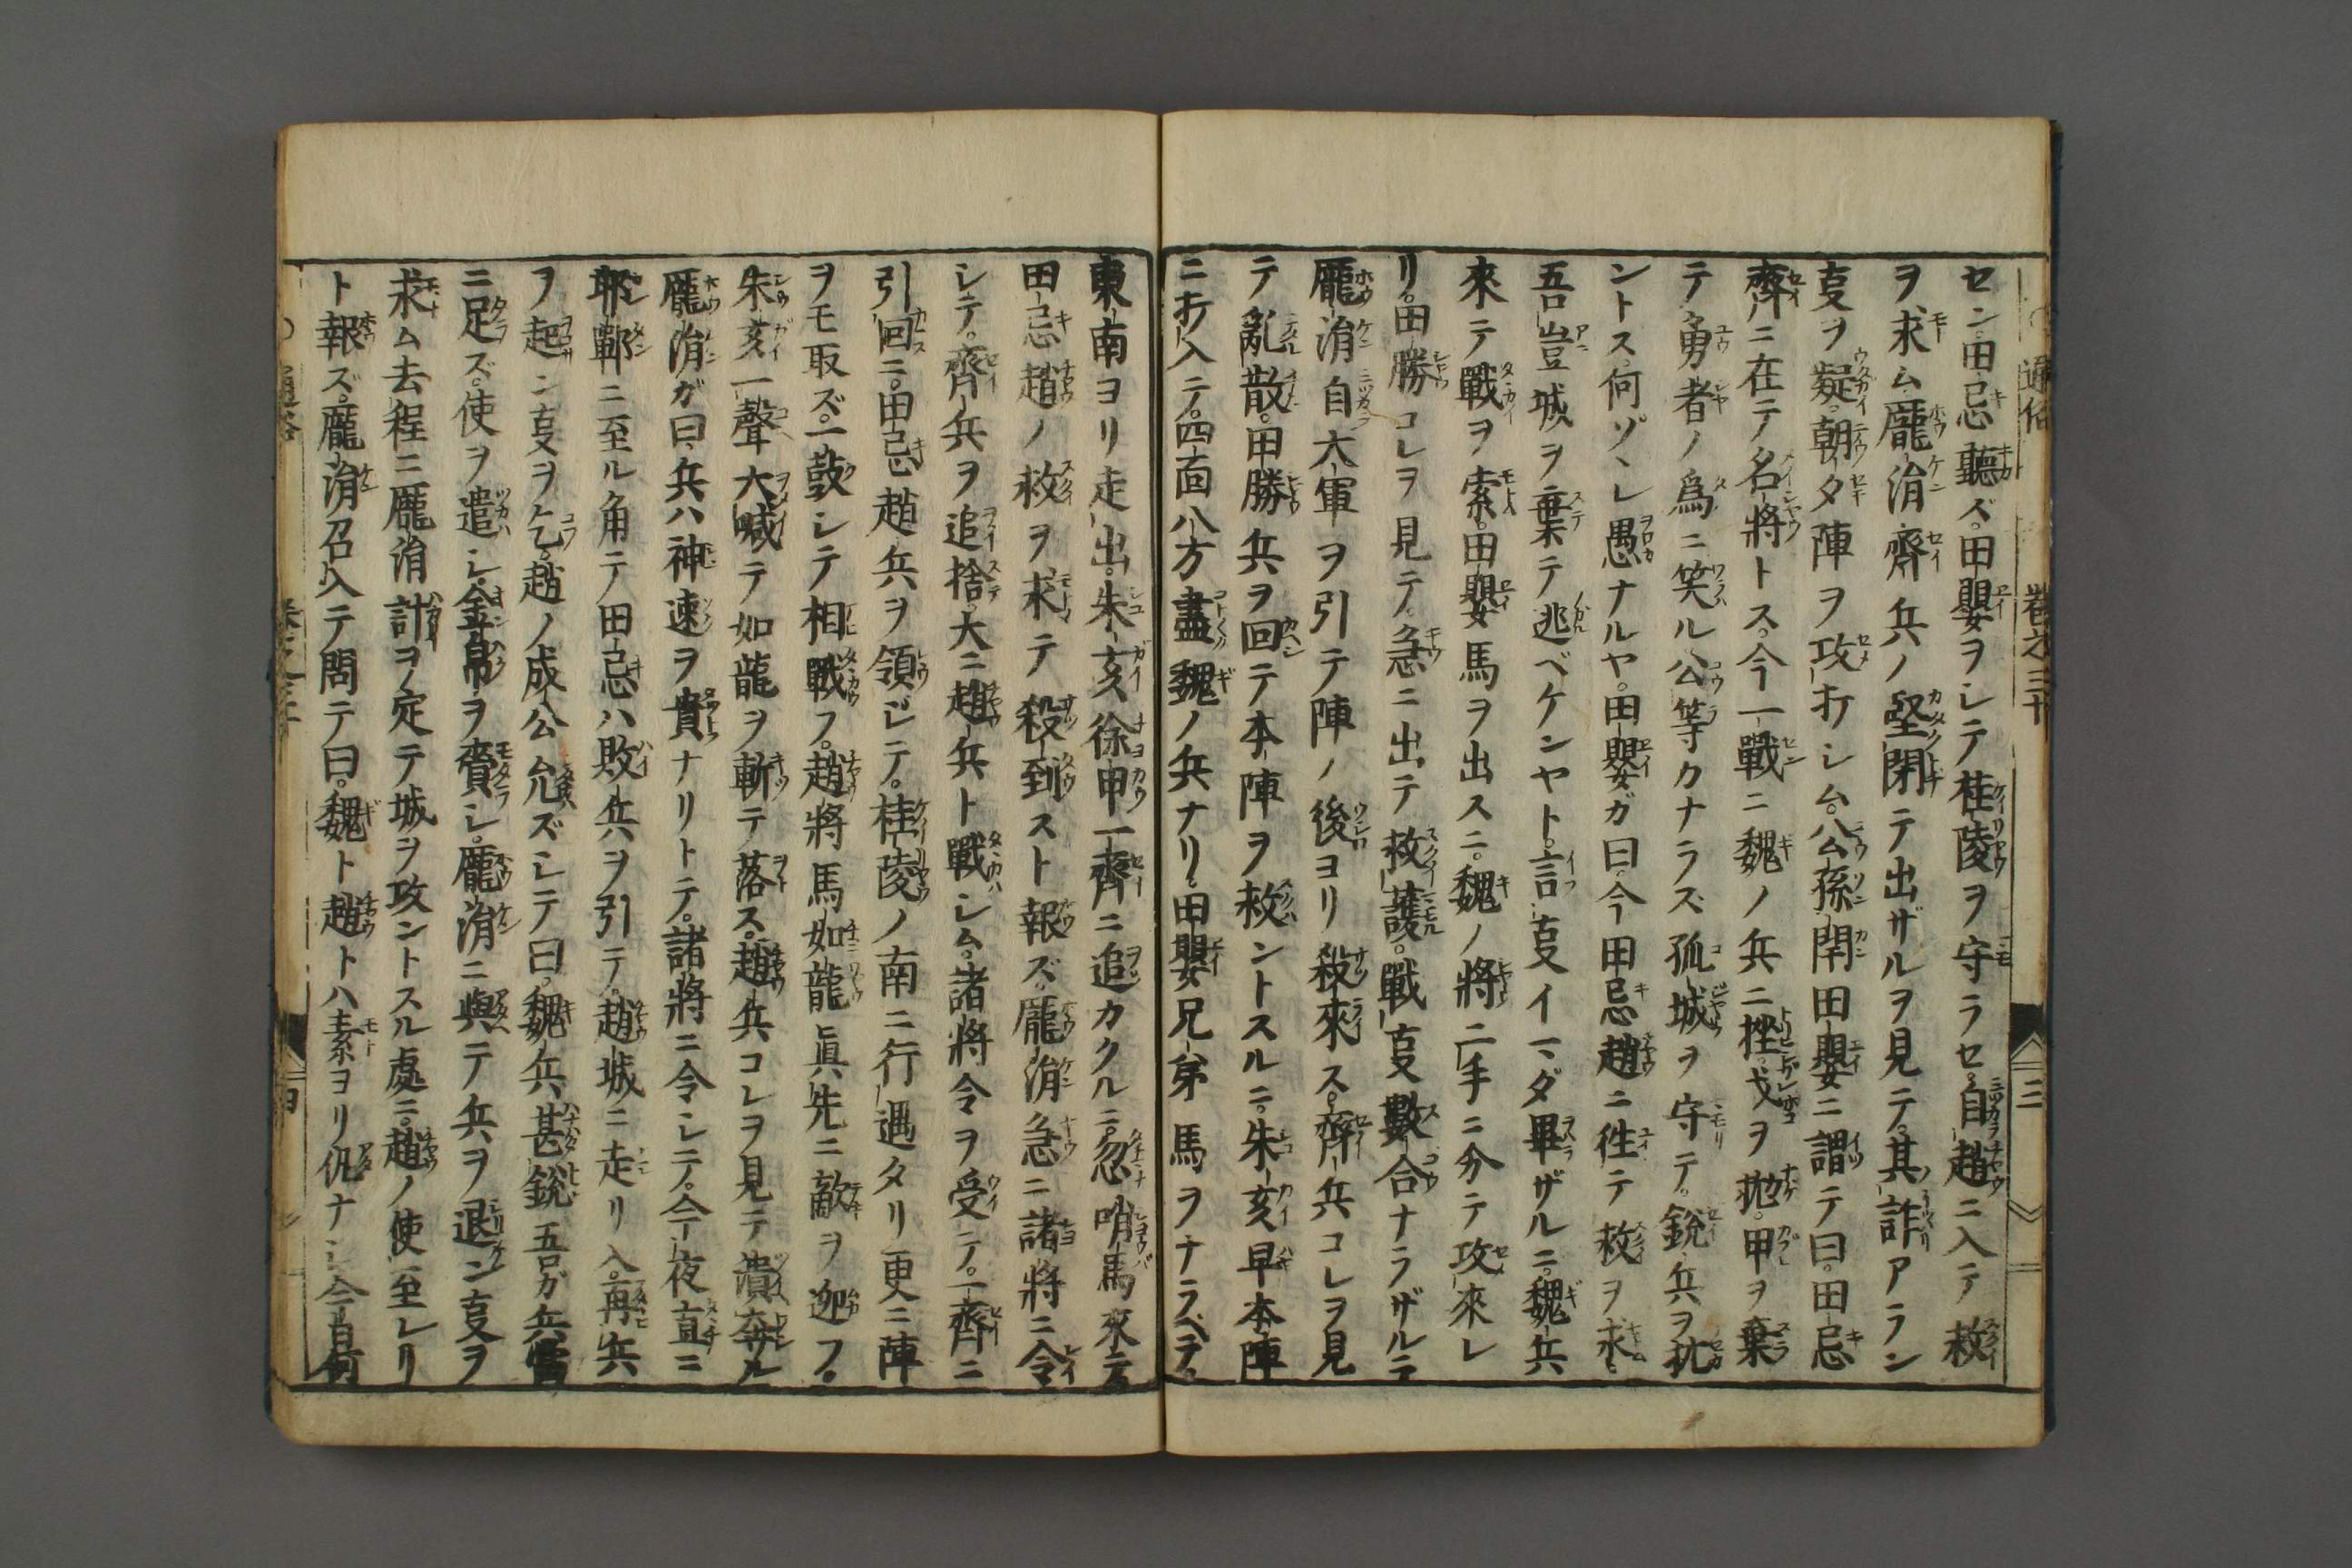 通俗 巻之三十 三
セン田忌聽ズ。田嬰ヲシテ桂陵ヲ守ラセ。自趙ニ入テ救
ヲ求ム龐涓齊兵ノ堅閉テ出ザルヲ見テ。其詐アラン
叓ヲ疑。朝夕陣ヲ攻打シム。公孫閈田嬰ニ謂テ曰。田忌
齊ニ在テ名將トス。今一戰ニ魏ノ兵ニ挫。戈ヲ抛。甲ヲ棄
テ勇者ノ為ニ笑ル公等カナラズ孤城ヲ守テ。銳兵ヲ抗
ントス。何ゾソレ愚ナルヤ。田嬰ガ曰。今田忌趙ニ徃テ救ヲ求。
吾豈城ヲ棄テ逃ベケンヤト。言叓イマダ畢ザルニ。魏兵
來テ戰ヲ索。田嬰馬ヲ出スニ。魏ノ將二手ニ分テ攻來レ
リ。田勝コレヲ見テ。急ニ出テ救護。戰叓數合ナラザルニ
龐涓自大軍ヲ引テ陣ノ後ヨリ殺來ス。齊兵コレヲ見
テ亂散。田勝兵ヲ回テ本陣ヲ救ントスルニ。朱亥早本陣
ニ打入テ。四面八方盡魏ノ兵ナリ。田嬰兄弟馬ヲナラベテ。
東南ヨリ走出。朱亥徐甲一齊ニ追カクルニ。忽哨馬來テ
田忌趙ノ救ヲ求テ殺到スト報ズ。龐涓急ニ諸將ニ令
シテ。齊兵ヲ追捨。大ニ趙兵ト戰シム。諸將令ヲ受テ。一齊ニ
引回ニ。田忌趙兵ヲ領ジテ。桂陵ノ南ニ行遇タリ更ニ陣
ヲモ取ズ。一鼓シテ相戰フ。趙將馬如龍眞先ニ敵ヲ迎フ。
朱亥一聲大喊テ如龍ヲ斬テ落ス。趙兵コレヲ見テ潰奔ル
龐涓ガ曰。兵ハ神速ヲ貴ナリトテ。諸將ニ令シテ。今夜直ニ
邯鄲ニ至ル角テ田忌ハ敗兵ヲ引テ。趙城ニ走リ入。再兵
ヲ起ン叓ヲ乞。趙ノ成公允ズシテ曰。魏兵甚銳吾ガ兵當
ニ足ズ。使ヲ遣シ。金帛ヲ賫シ。龐涓ニ與テ兵ヲ退ン叓ヲ
求ム去程ニ龐涓計ヲ定テ城ヲ攻ントスル處ニ。趙ノ使至レリ
ト報ズ。龐涓召入テ問テ曰。魏ト趙トハ素ヨリ仇ナシ今旹何
通俗 巻之三十 四